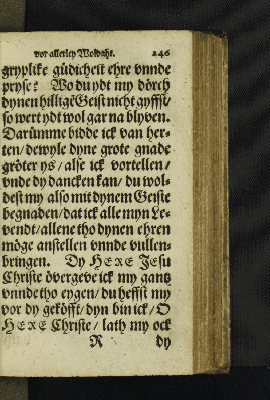 vor allerley Woldaht. 246
gryplike güdicheit ehre vnnde
pryse? Wo du ydt my dörch
dynen hilligē Geist nicht gyffst/
so wert ydt wol gar na blyven.
Darümme bidde ick van her-
ten/ dewyle dyne grote gnade
gröter ys/ alse ick vortellen/
vnde dy dancken kan/ du wol-
dest my also mit dynem Geiste
begnaden/ dat ick alle myn Le-
vendt/ allene tho dynen ehren
möge anstellen vnnde vullen-
bringen. Dy HERE Jesu
Christe övergeve ick my gantz
vnnde tho eygen/ du heffst my
vor dy geköfft/ dyn bin ick/ O
HERE Christe/ lath my ock
R dy